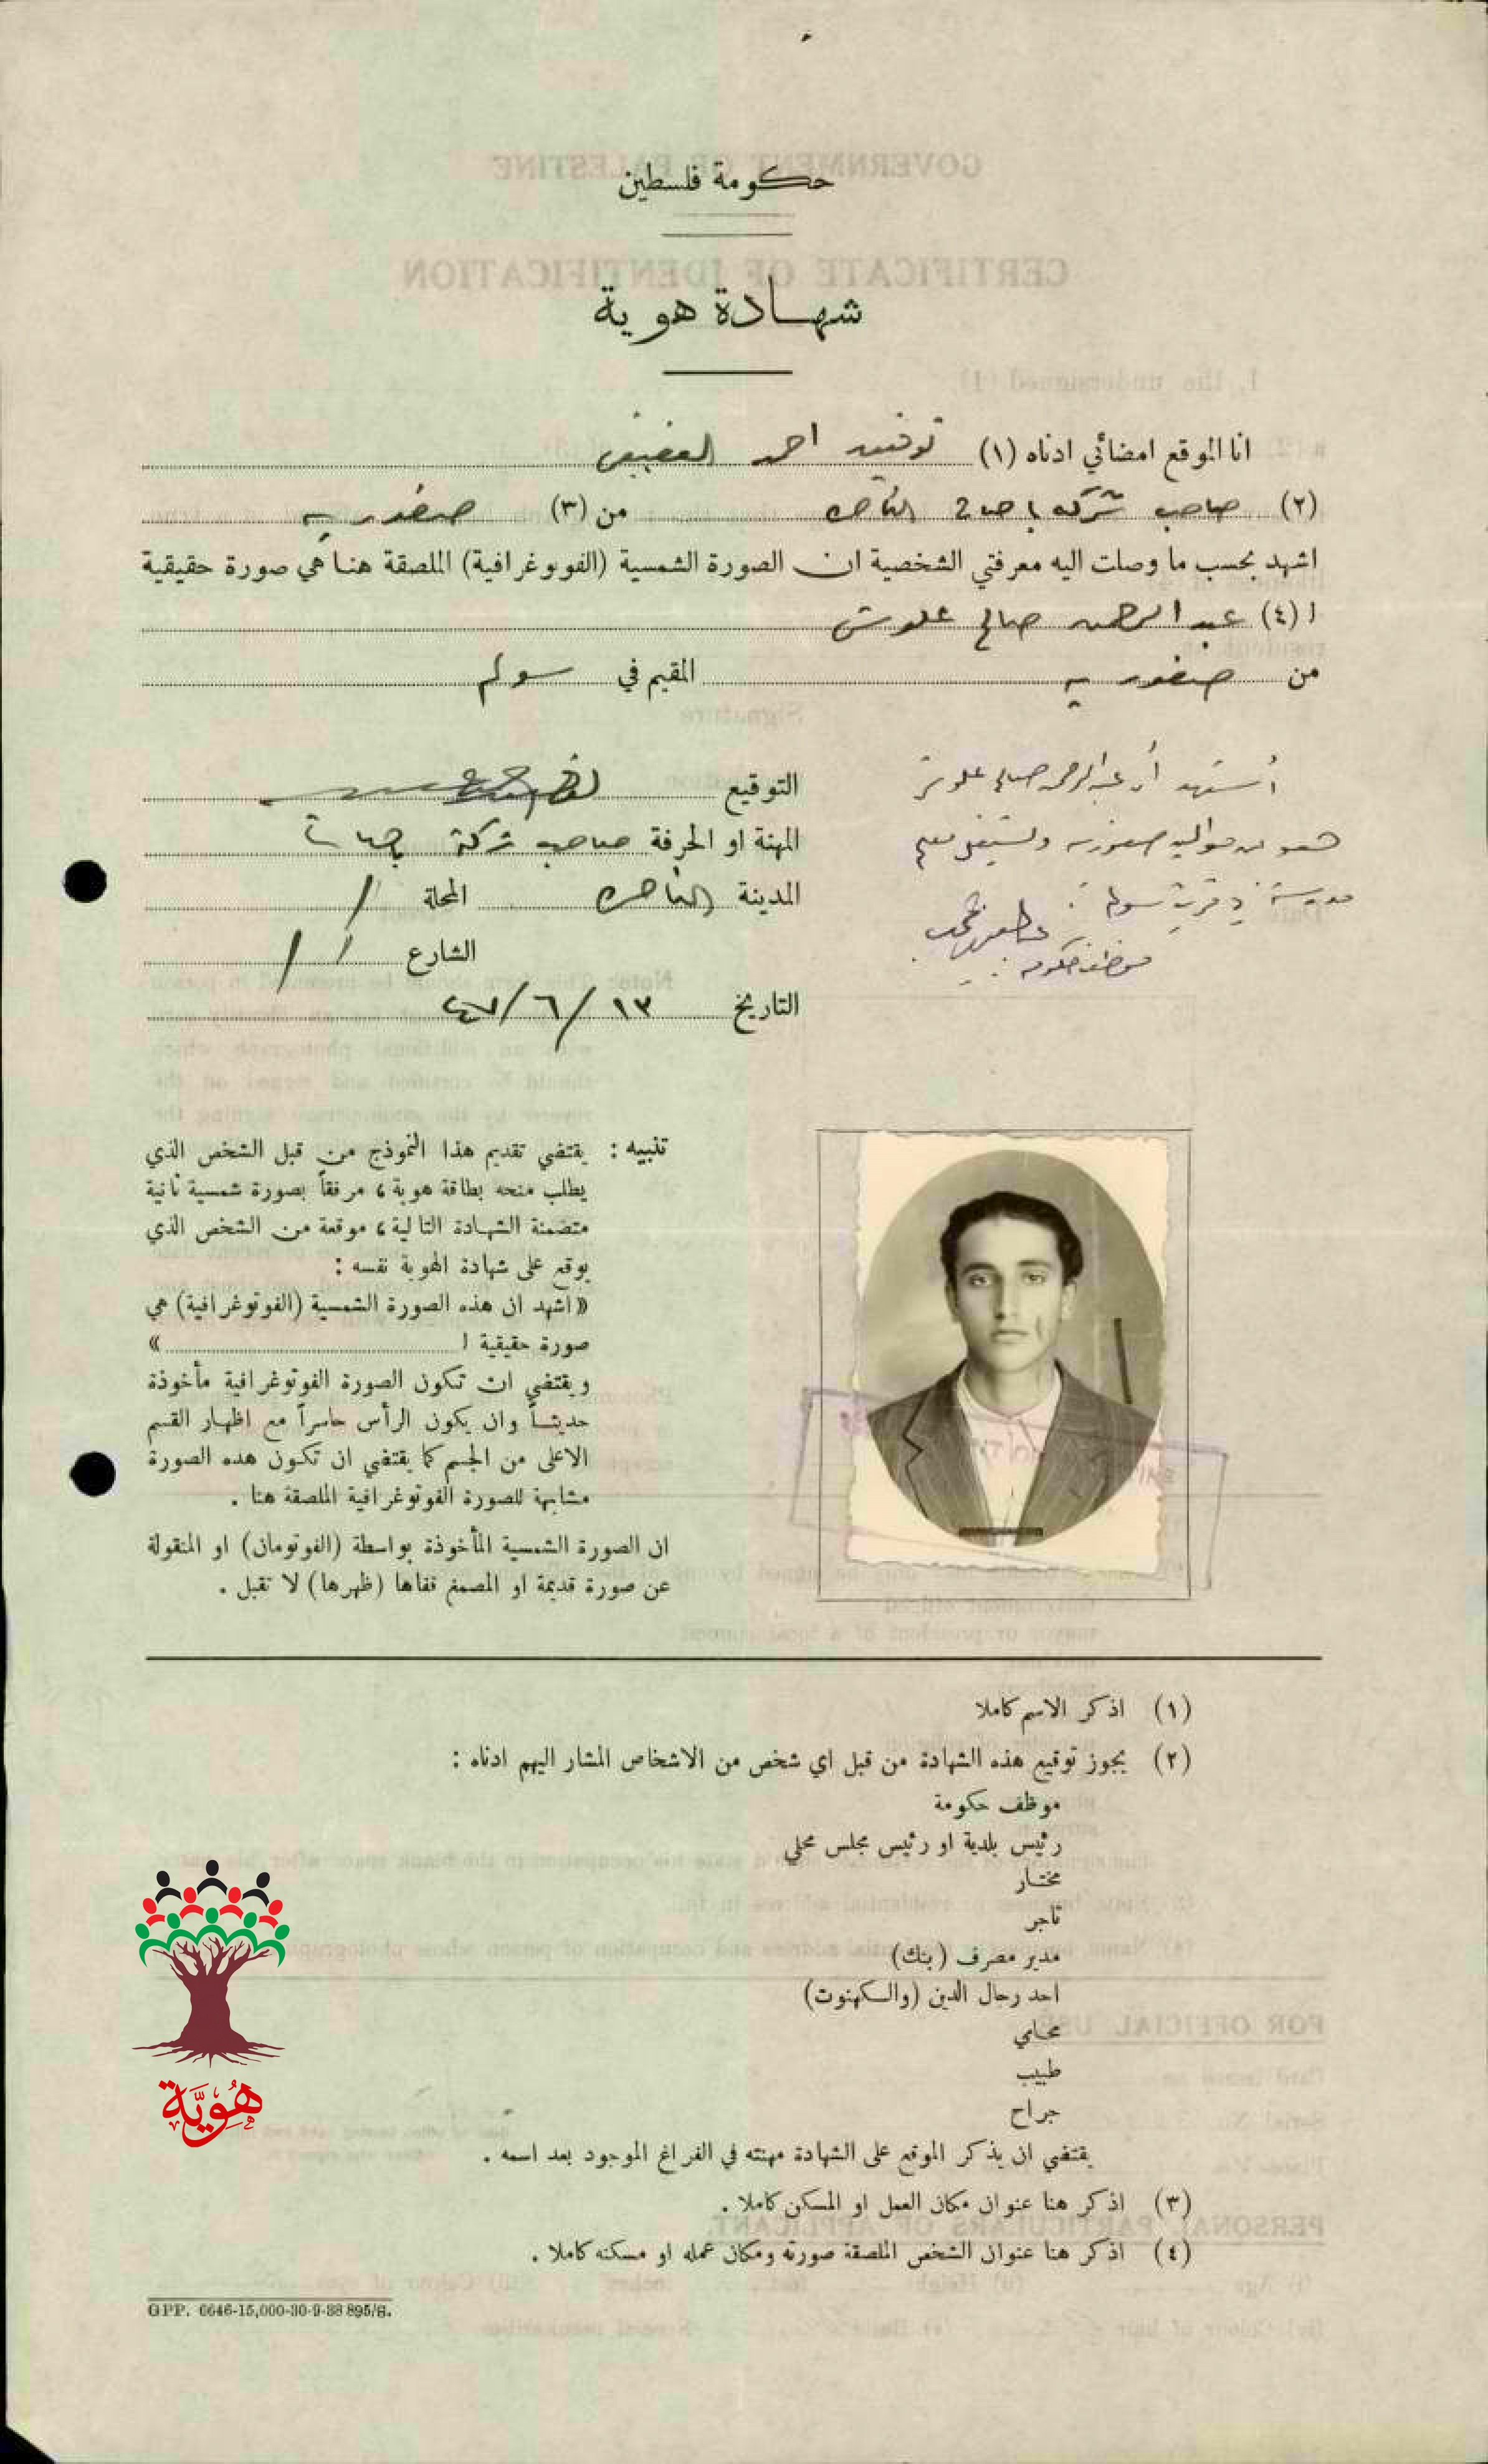 حكومة فلسطين
شهادة هوية
انا الموقع امضائي ادناه (١) توفيق احمد العفيفي
(٢) صاحب شركة باصات الناصرة من (٣) صفوريه
اشهد بحسب ما وصلت اليه معرفتي الشخصية ان الصورة الشمسية (الفوتوغرافية) الملصقة هنا هي صورة حقيقية
ا (٤) عبد الرحمن صالح علوش
من صفوريه المقيم في سولم
أشهد أن عبد الرحمن صالح علوش
هو من مواليد صفورية ويشتغل معلم
مدرسة في قرية سولم
موظف حكومة
التوقيع
المهنة او الحرفة صاحب شركة باصات
المدينة الناصرة المحلة /
الشارع / /
التاريخ ١٣/٦/٤٧
تنبيه : يقتضي تقديم هذا النموذج من قبل الشخص الذي
يطلب منحه بطاقة هوية ، مرفقاً بصورة شمسية ثانية
متضمنة الشهادة التالية ، موقعة من الشخص الذي
يوقع على شهادة الهوية نفسه :
«اشهد ان هذه الصورة الشمسية (الفوتوغرافية) هي
صورة حقيقية ا »
ويقتضي ان تكون الصورة الفوتوغرافية مأخوذة
حديثاً وان يكون الرأس حاسراً مع اظهار القسم
الاعلى من الجسم كما يقتضي ان تكون هذه الصورة
مشابهة للصورة الفوتوغرافية الملصقة هنا .
ان الصورة الشمسية المأخوذة بواسطة (الفوتومان) او المنقولة
عن صورة قديمة او المصمغ قفاها (ظهرها) لا تقبل .
(١) اذكر الاسم كاملا
(٢) يجوز توقيع هذه الشهادة من قبل اي شخص من الاشخاص المشار اليهم ادناه :
موظف حكومة
رئيس بلدية او رئيس مجلس محلي
مختار
تاجر
مدير مصرف (بنك)
احد رجال الدين (والكهنوت)
محامي
طبيب
جراح
يقتضي ان يذكر الموقع على الشهادة مهنته في الفراغ الموجود بعد اسمه .
(٣) اذكر هنا عنوان مكان العمل او المسكن كاملا .
(٤) اذكر هنا عنوان الشخص الملصقة صورته ومكان عمله او مسكنه كاملا .
GPP. 6646-15,000-30-9-38 895/S.
هُوِيَّة